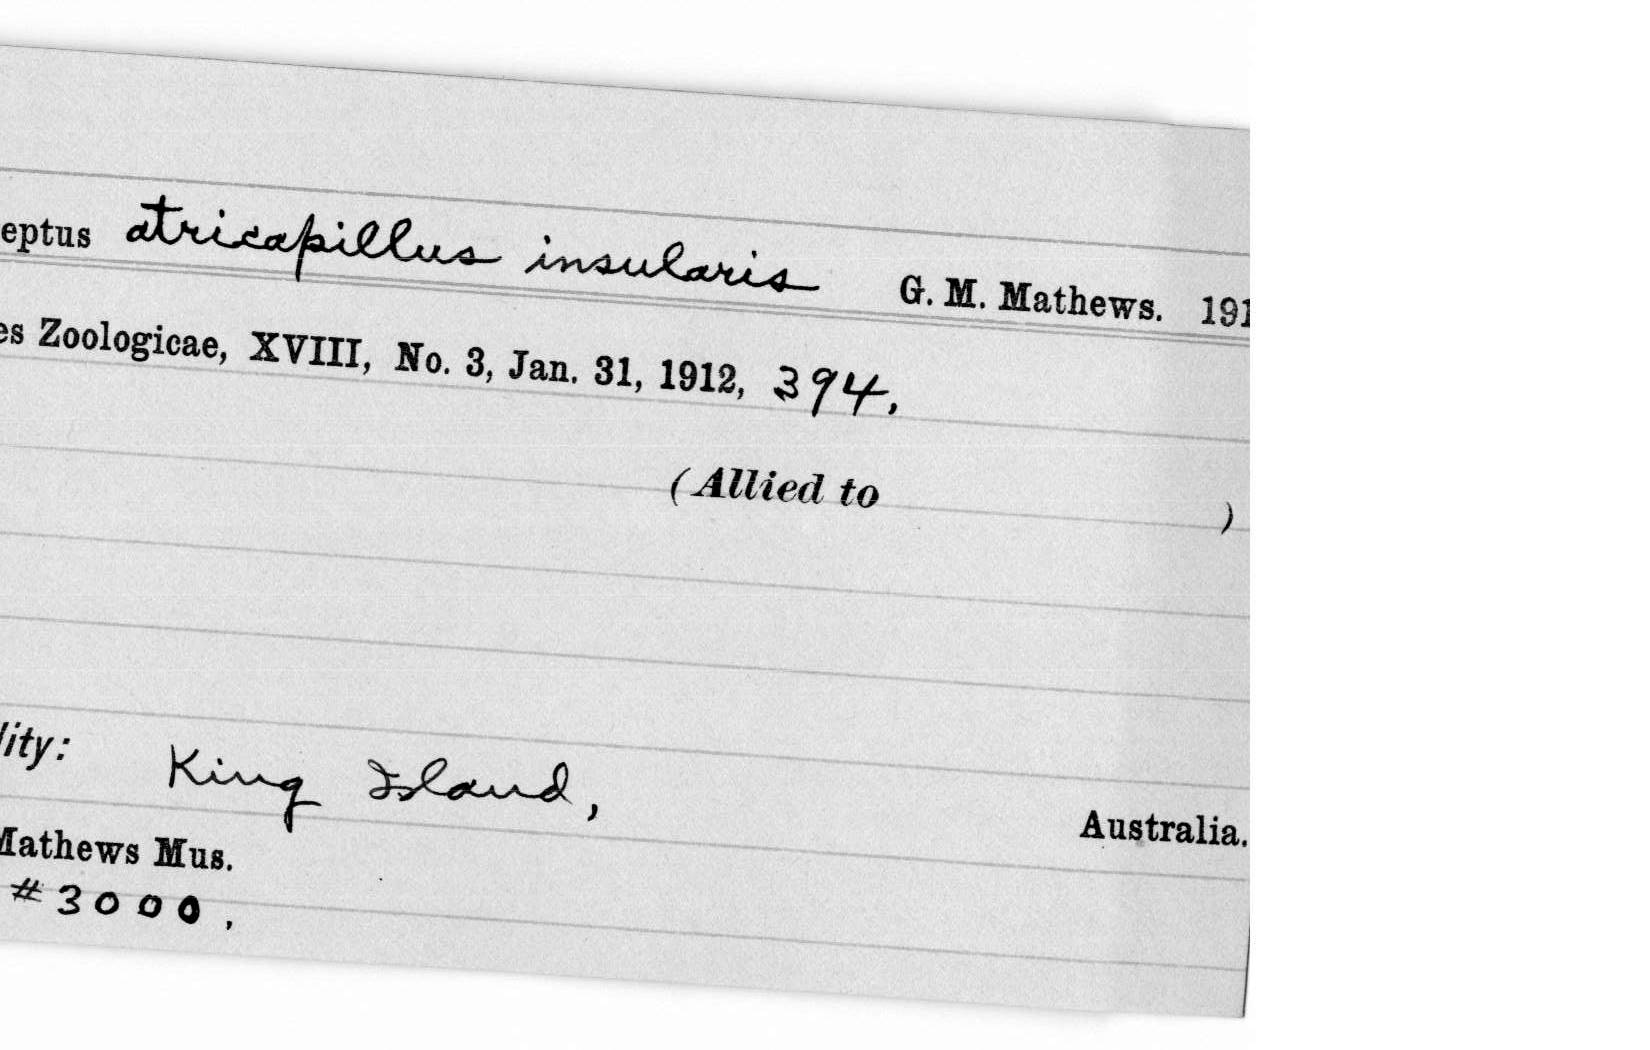 eptus atricapillus insularis G. M. Mathews. 191
es Zoologicae, XVIII, No. 3, Jan. 31, 1912, 394.
(Allied to )
lity: King Island, Australia.
Mathews Mus.
#3000.